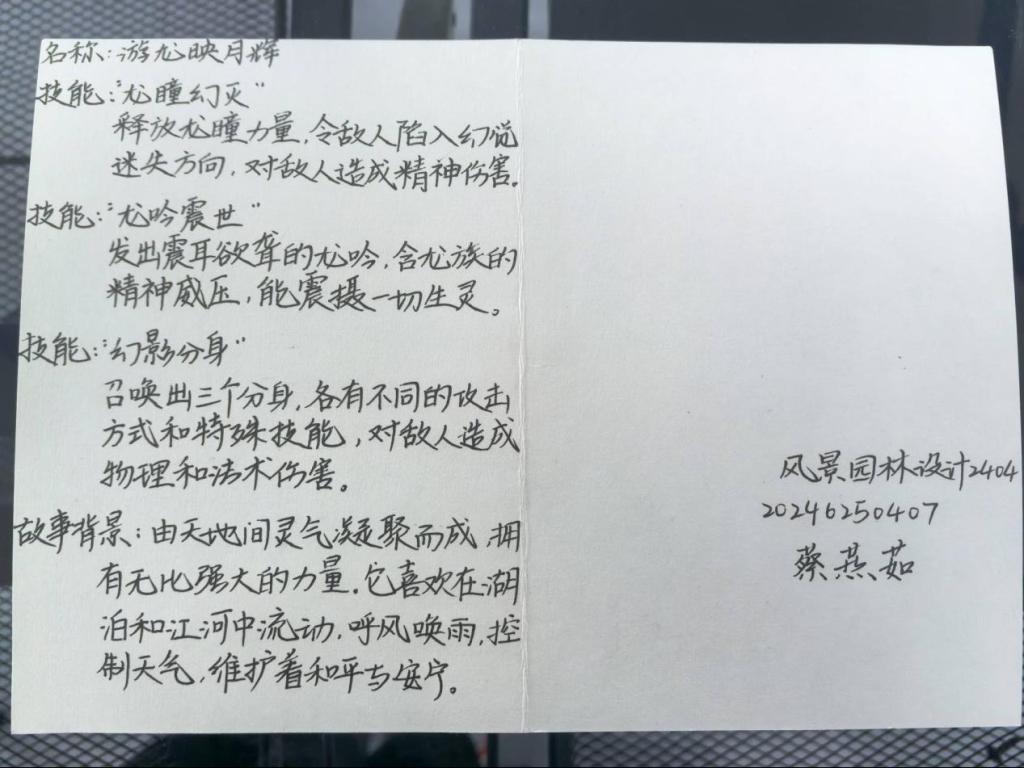 名称:游龙映月辉
技能:“龙瞳幻灭”
释放龙瞳力量,令敌人陷入幻觉
迷失方向,对敌人造成精神伤害。
技能:“龙吟震世”
发出震耳欲聋的龙吟,含龙族的
精神威压,能震摄一切生灵。
技能:“幻影分身”
召唤出三个分身,各有不同的攻击
方式和特殊技能,对敌人造成
物理和法术伤害。
故事背景:由天地间灵气凝聚而成,拥
有无比强大的力量.它喜欢在湖
泊和江河中流动,呼风唤雨,控
制天气,维护着和平与安宁。
风景园林设计2404
20246250407
蔡燕茹